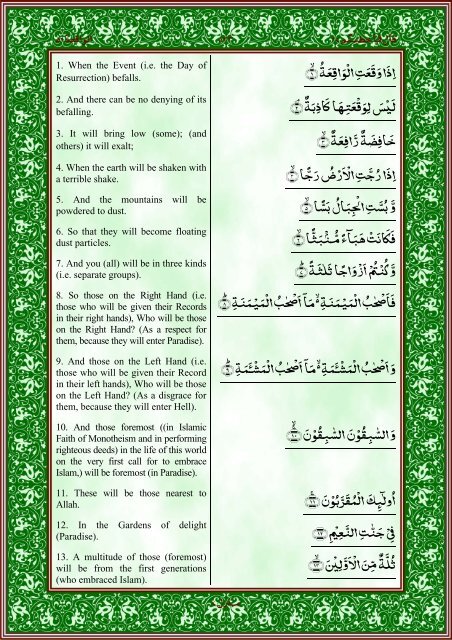 1. When the Event (i.e. the Day of
Resurrection) befalls.
اِذَا وَقَعَتِ الْوَاقِعَةُ ۙ‏﴿۱﴾
2. And there can be no denying of its
befalling.
لَيْسَ لِوَقْعَتِهَا كَاذِبَةٌ ۘ‏﴿۲﴾
3. It will bring low (some); (and
others) it will exalt;
خَافِضَةٌ رَّافِعَةٌ ۙ‏﴿۳﴾
4. When the earth will be shaken with
a terrible shake.
اِذَا رُجَّتِ الْاَرْضُ رَجًّا ۙ‏﴿۴﴾
5. And the mountains will be
powdered to dust.
وَّ بُسَّتِ الْجِبَالُ بَسًّا ۙ‏﴿۵﴾
6. So that they will become floating
dust particles.
فَكَانَتْ هَبَآءً مُّنْۢبَثًّا ۙ‏﴿۶﴾
7. And you (all) will be in three kinds
(i.e. separate groups).
وَّ كُنْتُمْ اَزْوَاجًا ثَلٰثَةً ؕ‏﴿۷﴾
8. So those on the Right Hand (i.e.
those who will be given their Records
in their right hands), Who will be those
on the Right Hand? (As a respect for
them, because they will enter Paradise).
فَاَصْحٰبُ الْمَيْمَنَةِ ۙ۬ مَاۤ اَصْحٰبُ الْمَيْمَنَةِ ؕ‏﴿۸﴾
9. And those on the Left Hand (i.e.
those who will be given their Record
in their left hands), Who will be those
on the Left Hand? (As a disgrace for
them, because they will enter Hell).
وَ اَصْحٰبُ الْمَشْـَٔمَةِ ۙ۬ مَاۤ اَصْحٰبُ الْمَشْـَٔمَةِ ؕ‏﴿۹﴾
10. And those foremost ((in Islamic
Faith of Monotheism and in performing
righteous deeds) in the life of this world
on the very first call for to embrace
Islam,) will be foremost (in Paradise).
وَ السّٰبِقُوْنَ السّٰبِقُوْنَ ۚۙ‏﴿۱۰﴾
11. These will be those nearest to
Allah.
اُولٰٓئِكَ الْمُقَرَّبُوْنَ ۚ‏﴿۱۱﴾
12. In the Gardens of delight
(Paradise).
فِيْ جَنّٰتِ النَّعِيْمِ ‏﴿۱۲﴾
13. A multitude of those (foremost)
will be from the first generations
(who embraced Islam).
ثُلَّةٌ مِّنَ الْاَوَّلِيْنَ ۙ‏﴿۱۳﴾